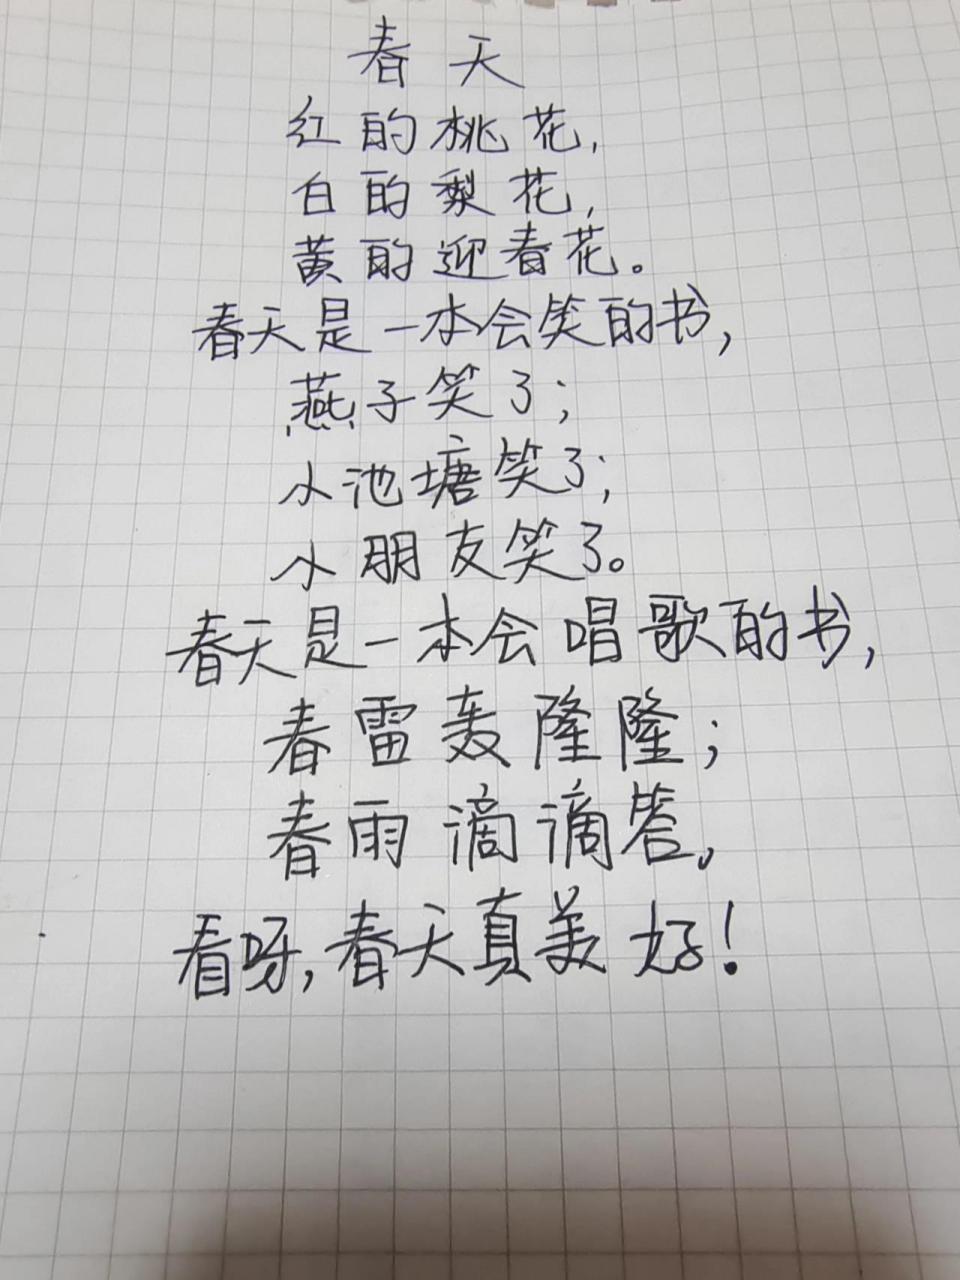 春天
红的桃花,
白的梨花,
黄的迎春花。
春天是一本会笑的书,
燕子笑了;
小池塘笑了;
小朋友笑了。
春天是一本会唱歌的书,
春雷轰隆隆;
春雨滴滴答,
看呀,春天真美好!